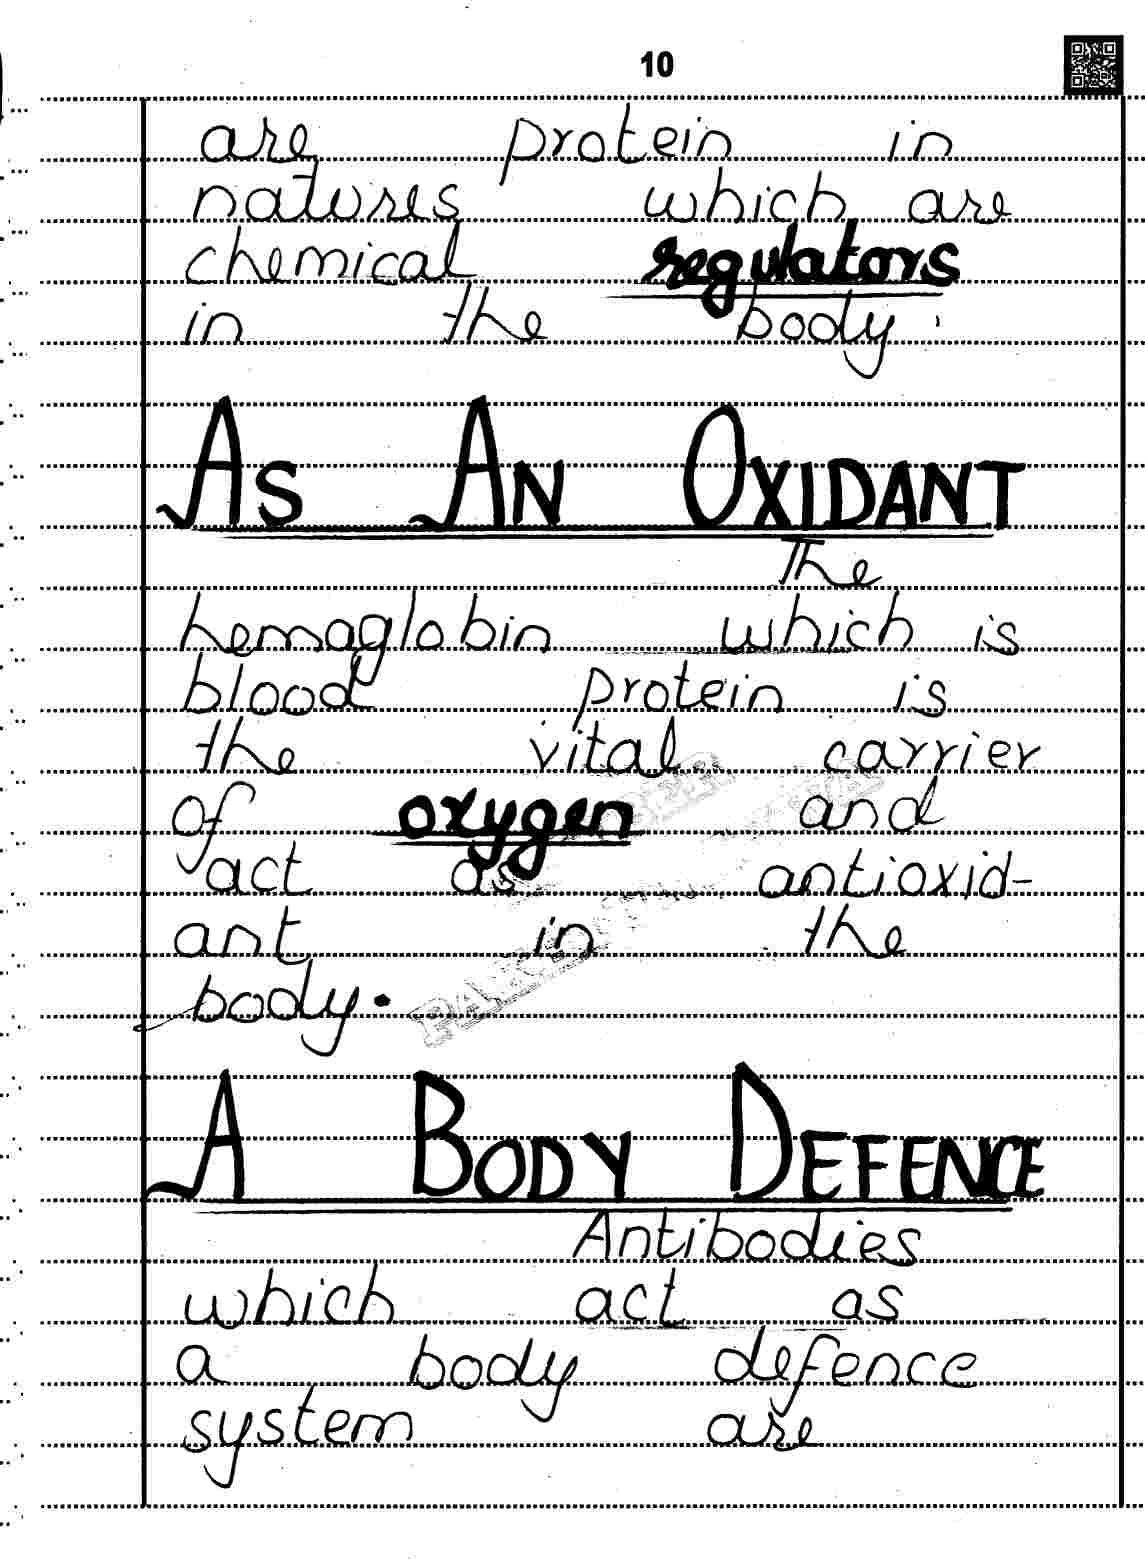 10
are protein in
natures which are
chemical regulators
in the body.
AS AN OXIDANT
The
hemaglobin which is
blood protein is
the vital carrier
of oxygen and
act as antioxid-
ant in the
body.
A BODY DEFENCE
Antibodies
which act as
a body defence
system are